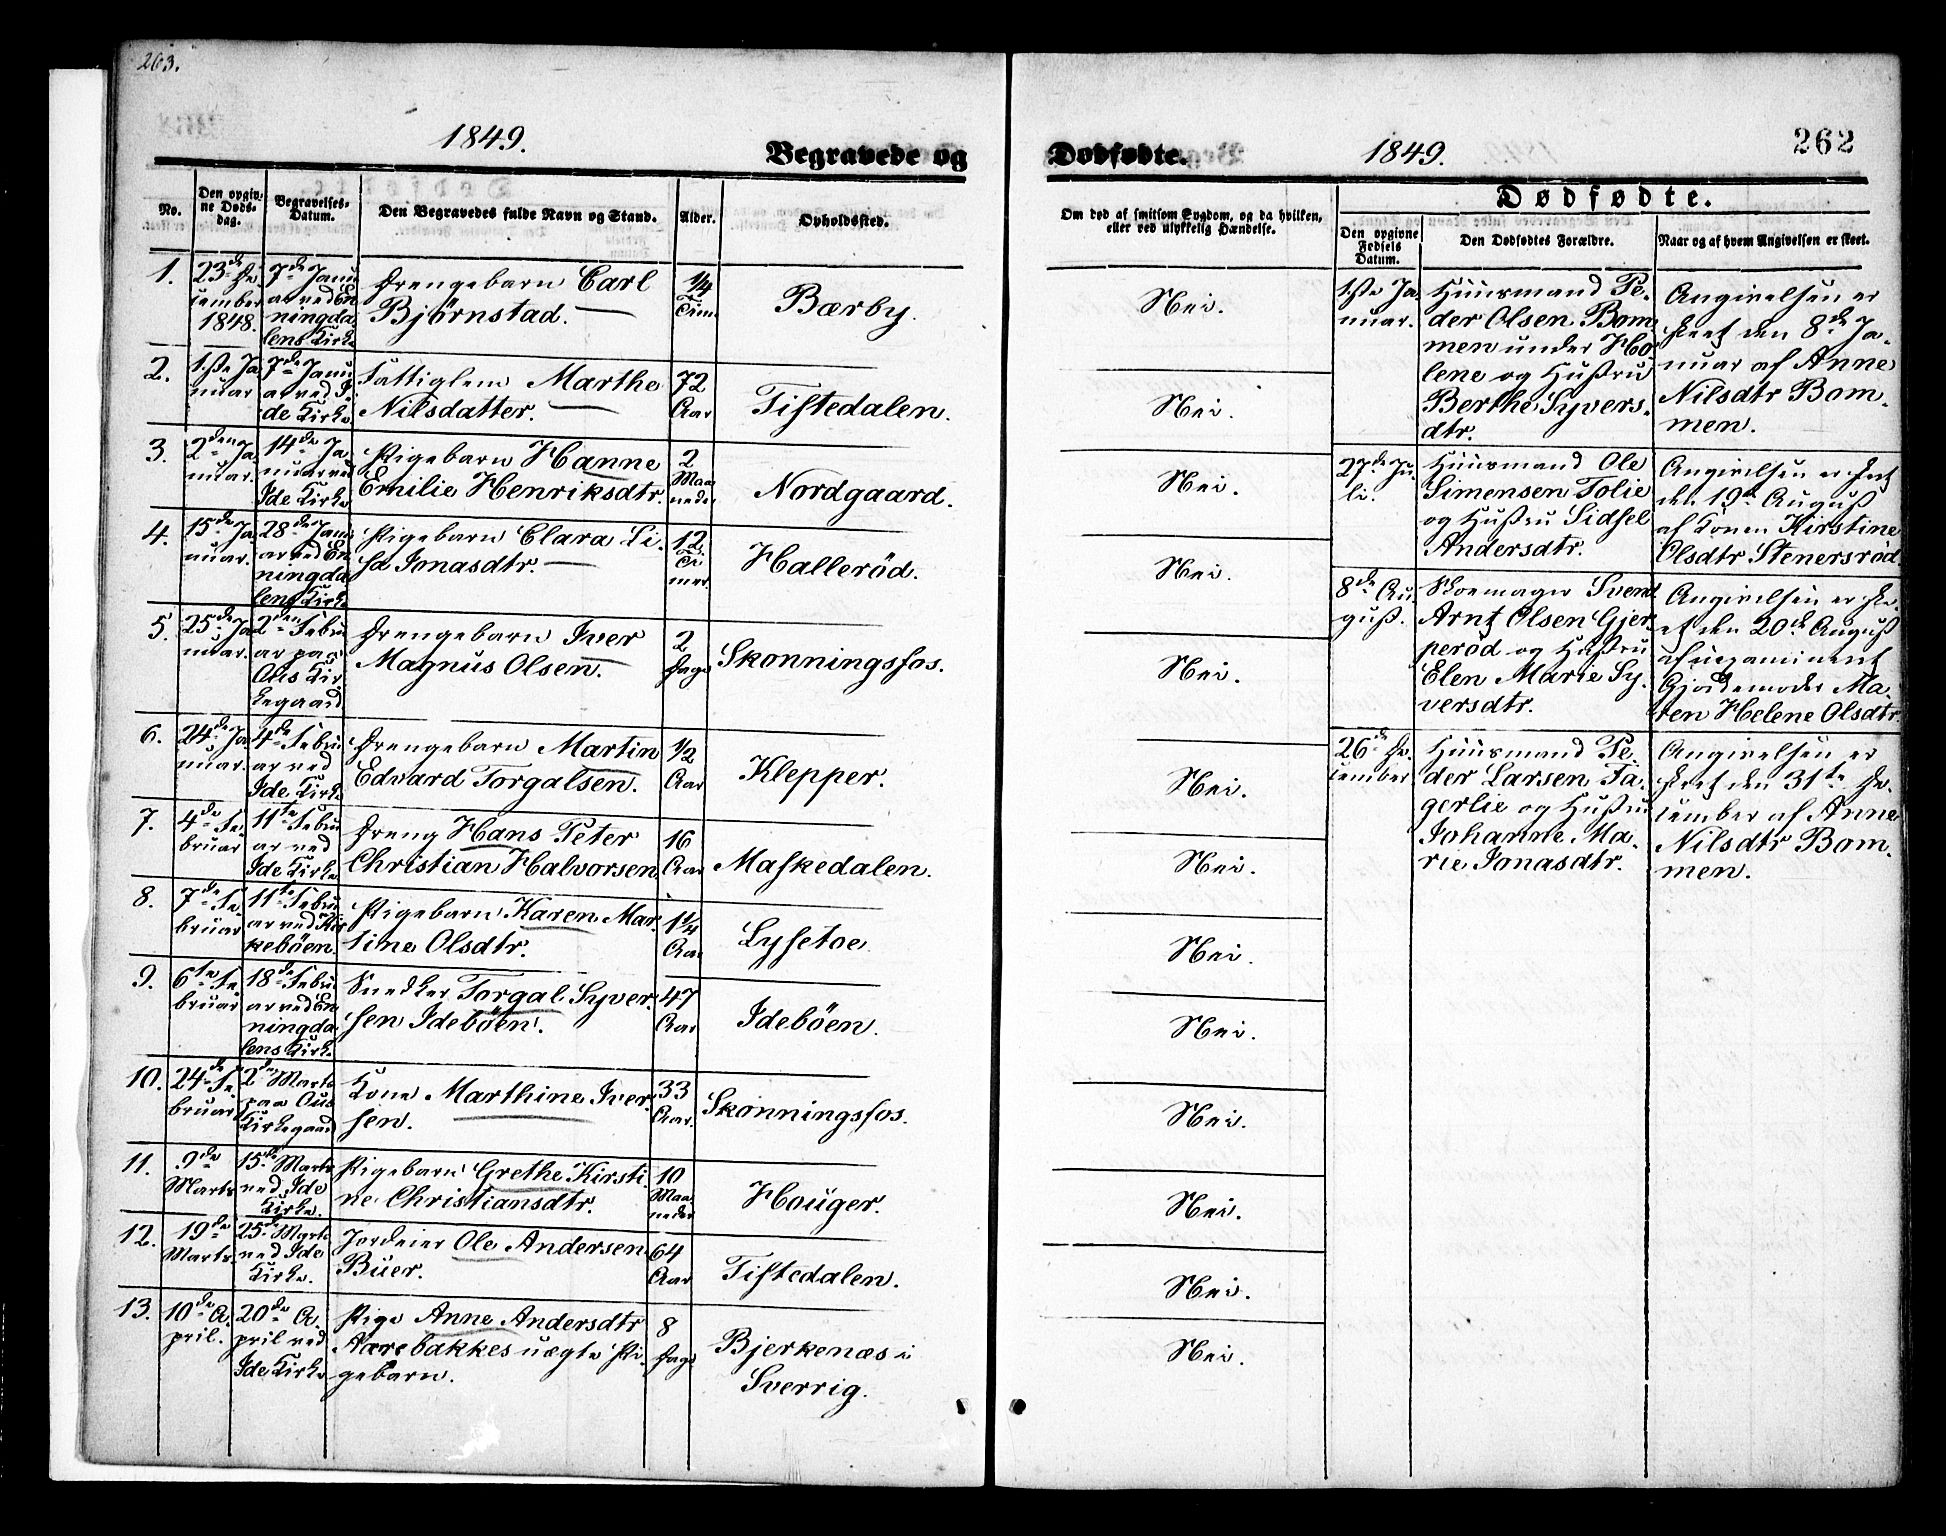 263.
1849.
Begravede og
No.
Den opgiv-
ne Døds-
dag.
Begravelses-
Datum.
Den Begravedes fulde Navn og Stand.
Alder.
Opholdssted.
1.
23de De
cember
1848.
7de Janu
ar ved En
ningda
lens Kirke
Drengebarn Carl
Bjørnstad.
1/4
Time
Bærby.
2.
1ste Ja
nuar
7de Janu
ar ved I
de Kirke
Fattiglem Marthe
Nilsdatter.
72
Aar
Tistedalen.
3.
2den Ja
nuar.
14de Ja
nuar ved
Ide Kirke
Pigebarn Hanne
Emilie Henriksdtr.
2
Maa
neder
Nordgaard.
4.
15de Ja
nuar.
28de Janu
ar ved En
ningda
lens Kirke
Pigebarn Clara Li-
sa Jonasdtr.
12
Ti
mer.
Hallerød.
5.
25de Ja
nuar.
2den Febru
ar paa
Ous Kir
kegaard
Drengebarn Iver
Magnus Olsen.
2
Dage
Skonningsfos.
6.
24de Ja
nuar.
4de Febru
ar ved
Ide Kirke
Drengebarn Martin
Edvard Torgalsen.
1/2
Aar
Klepper.
7.
4de Fe
bruar
11te Febru
ar ved
Ide Kirke
Dreng Hans Peter
Christian Halvorsen
16
Aar
Maskedalen.
8.
7de Fe
bruar
11te Febru
ar ved Kir
keböen
Pigebarn Karen Mar
tine Olsdtr.
1 1/4
Aar
Lysetoe
9.
6te Fe
bruar
18de Febru
ar ved En
ningda
lens Kirke
Snedker Torgal Syver-
sen Ideböen.
47
Aar
Ideböen.
10.
24de Fe
bruar
2den Marts
paa Ous
Kirkegaard
Kone Marthine Iver
sen.
33
Aar.
Skonningsfos.
11.
9de
Marts
15de Marts
ved Ide
Kirke.
Pigebarn Grethe Kirsti
ne Christiansdtr.
10
Maa
neder
Houger.
12.
19de
Marts.
25de Marts
ved Ide
Kirke.
Jordeier Ole Andersen
Buer.
64
Aar
Tistedalen.
13.
10de A
pril.
20de A
pril ved
Ide Kirke
Pige Anne Andersdtr
Aarebakkes uægte Pi-
gebarn.
8
Dage
Bjerkenæs i
Sverrig.
Dødfødte.
1849.
262
Om død af smitsom Sygdom, og da hvilken,
eller ved ulykkelig Hændelse.
Dødfødte.
Den opgivne
Fødsels
Datum.
Den Dødfødtes Forældre.
Naar og af hvem Angivelsen er skeet.
Nei.
Nei.
Nei.
Nei.
Nei.
Nei.
Nei.
Nei.
Nei.
Nei.
Nei.
Nei.
Nei.
1ste Ja
nuar.
Huusmand Pe-
der Olsen Bom
men under Ho
lene og Hustru
Berthe Syvers-
dtr.
Angivelsen er
skeet den 8de Ja-
nuar af Anne
Nilsdtr Bom-
men.
27de Ju
li.
Huusmand Ole
Simensen Tolie
og Hustru Sidsel
Andersdtr.
Angivelsen er skeet
den 19de August
af Konen Kirstine
Olsdtr Stenersrød
8de Au
gust.
Skomager Svend
Arnt Olsen Gjer
perød og Hustru
Elen Marie Sy-
versdtr.
Angivelsen er ske-
et den 20de August
af uexamineret
Gjordemoder Ma-
ren Helene Olsdtr.
26de De
cember
Huusmand Pe-
der Larsen Fa-
gerlie og Hustru
Johanne Ma-
rie Jonasdtr.
Angivelsen er
skeet den 31te De-
cember af Anne
Nilsdtr Bom-
men.